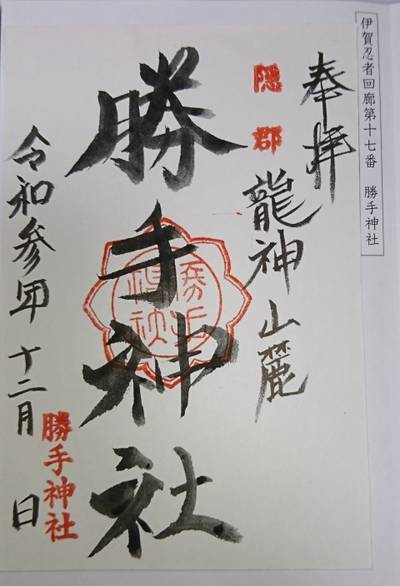 伊賀忍者回廊第十七番　勝手神社
奉拝
隠郡
龍神山麓
勝手神社
令和参年十二月　日
勝手神社